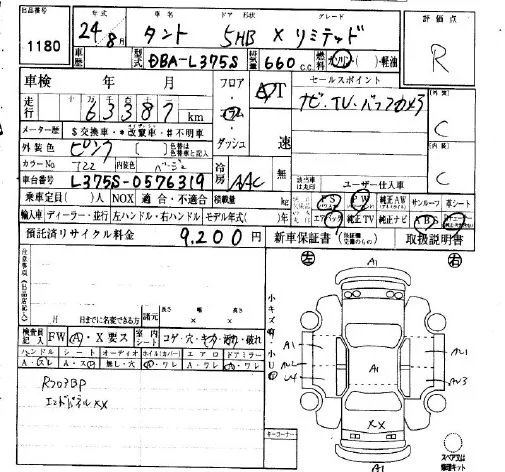 出品番号 年式 車名 ドア 形状 グレード 評価点
1180 24年8月 タント 5HB X リミテッド R
車歴 型式 DBA-L375S 排気量 660 c.c. 燃料 ガソリン・軽油
車検 年 月 フロア・コラム・ダッシュ AT 速 セールスポイント
走行 63387 km ナビ・TV・バックカメラ 外 C
メーター歴 $交換車・*改竄車・#不明車
外装色 ピンク 色替は色替車と記入 無
カラーNo T22 内装色 ベージュ 冷房 AAC 該当車は丸印 ユーザー仕入車 内 C
車台番号 L375S-0576319
乗車定員( )人 NOX 適合・不適合 積載量( )kg PS PW 純正AW サンルーフ 革シート
輸入車 ディーラー・並行 左ハンドル・右ハンドル モデル年式( )年 エアバック 純正TV 純正ナビ ABS
預託済リサイクル料金 9,200 円 新車保証書 取扱説明書
注意事項(出品店記入) 左 A1 右
月 日までに名変できる方 諸元 長さ 幅 高さ
× ×
小キズ有・小U
検査員記入 FW A・X要ス 室内シート コゲ・穴・キズ・汚れ・破れ
ハンドル シート オーディオ ホイル(カバー) エアロ ドアミラー
A・スレ A・スレ 無し・穴 A・ワレ A・ワレ A・ワレ
RフロアBP
エンドパネルXX
A1
A1
XX
A1
キーコーナー
スペア又は修理キット